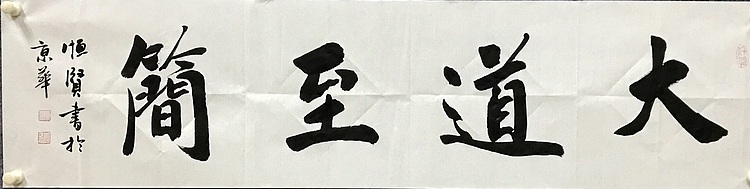 大道至簡
恒賢書於
京華